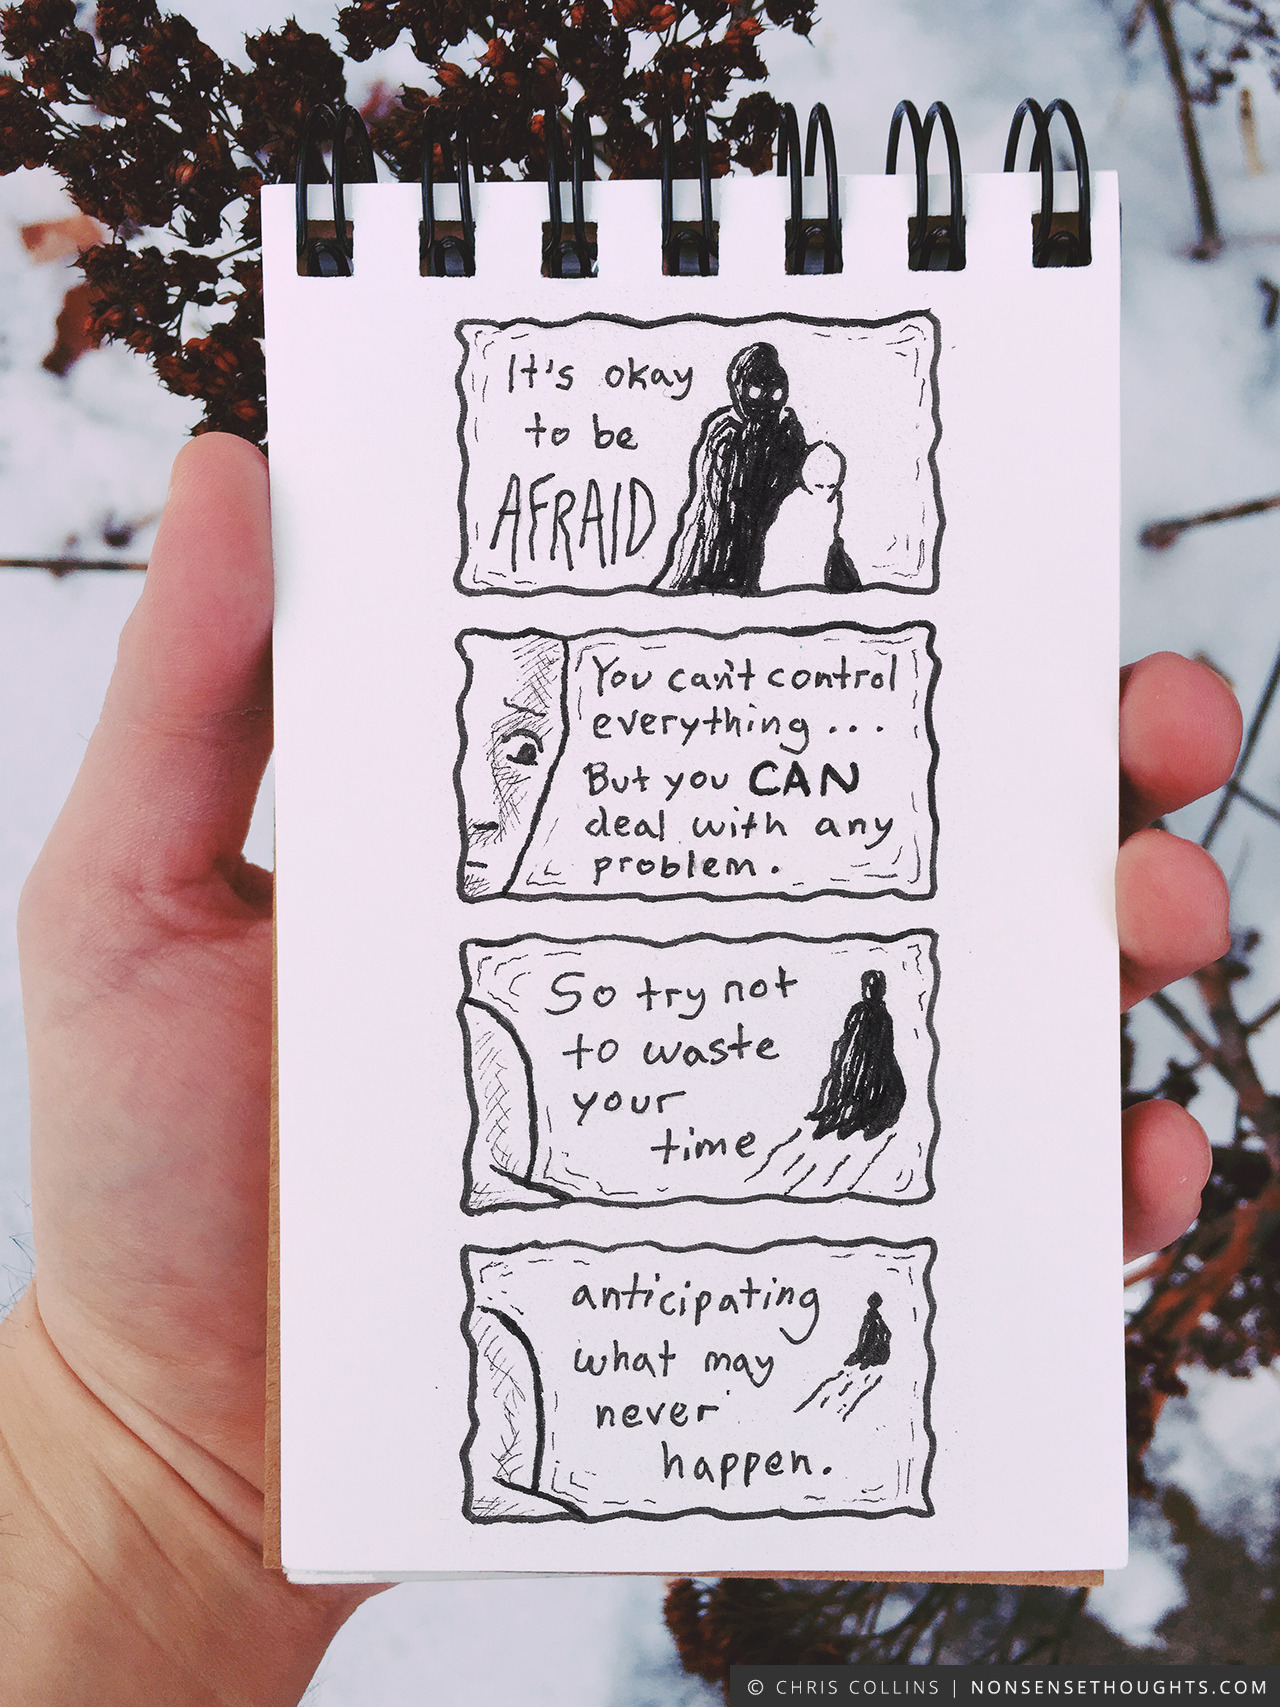 It's okay
to be
AFRAID
You can't control
everything...
But you CAN
deal with any
problem.
So try not
to waste
your
time
anticipating
what may
never
happen.
© CHRIS COLLINS | NONSENSETHOUGHTS.COM